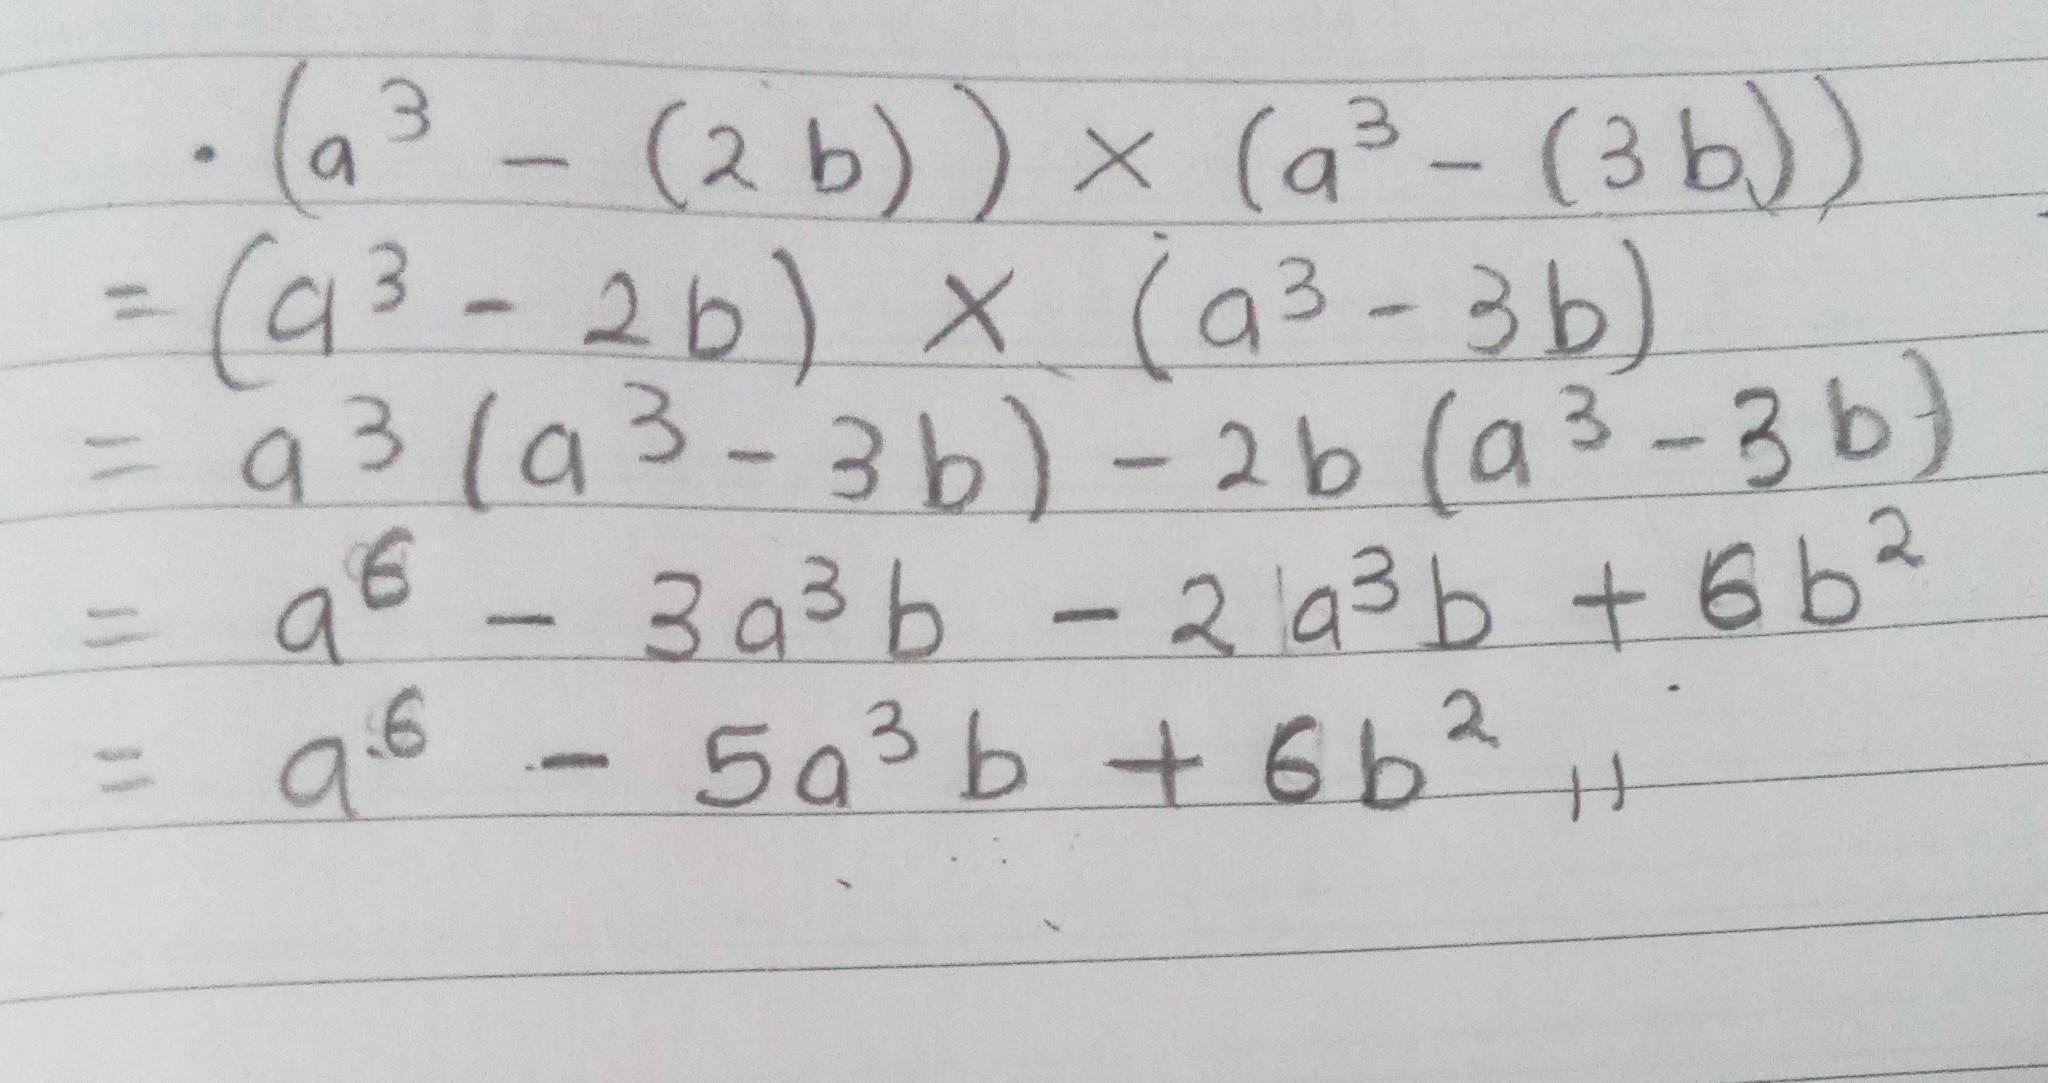 · (a³ - (2b)) × (a³ - (3b))
= (a³ - 2b) × (a³ - 3b)
= a³ (a³ - 3b) - 2b (a³ - 3b)
= a⁶ - 3a³b - 2a³b + 6b²
= a⁶ - 5a³b + 6b² ,,